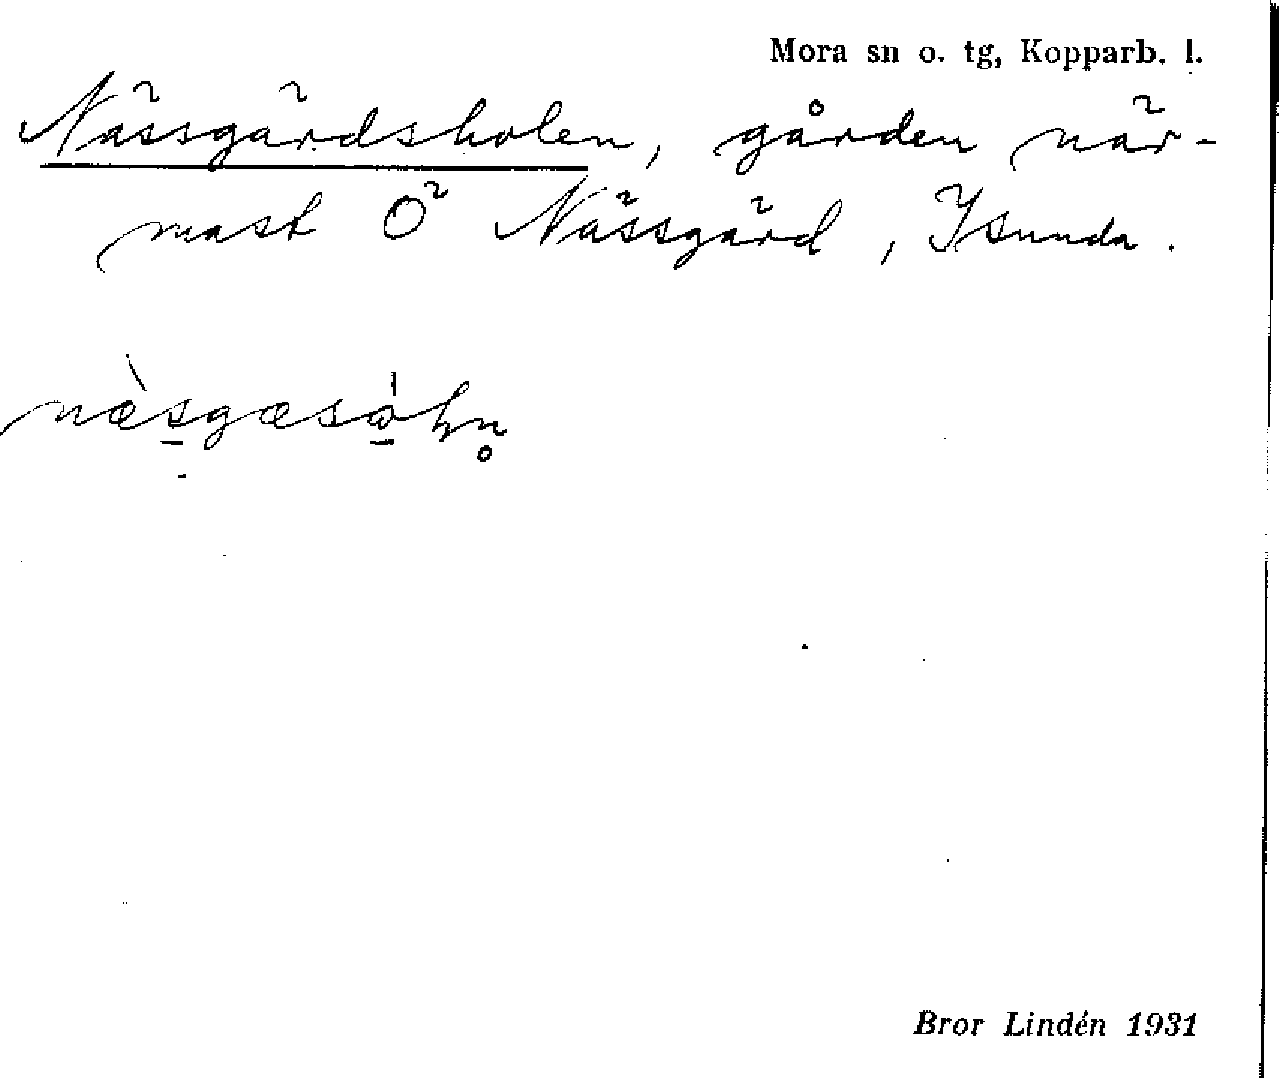 Mora sn o. tg, Kopparb. l.
Nässgärdsholen, gården när-
mast Ö Nässgärd, Isunda.
Bror Lindén 1931